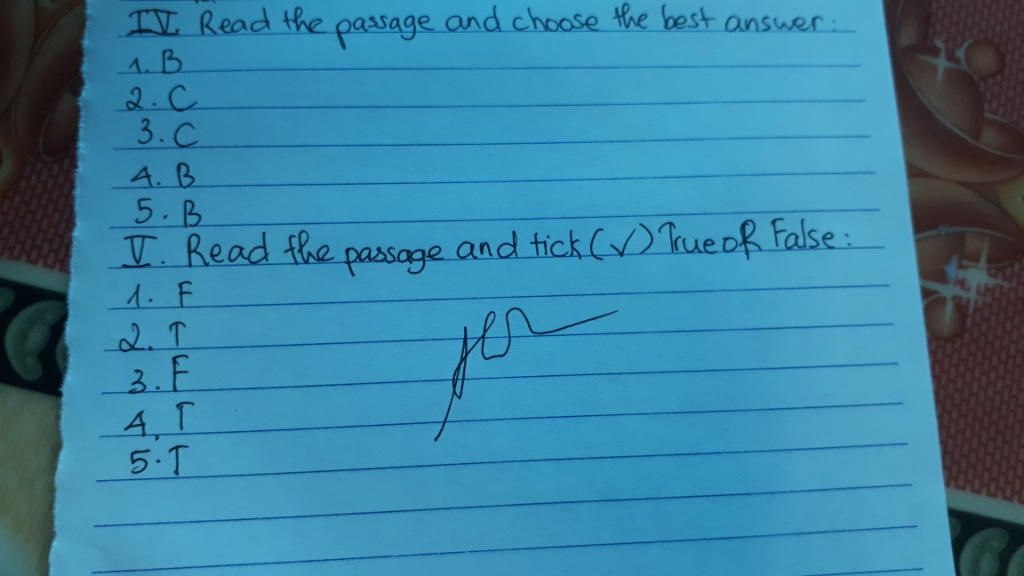 IV. Read the passage and choose the best answer:
1. B
2. C
3. C
4. B
5. B
V. Read the passage and tick (✓) True oR False:
1. F
2. T
3. F
4. T
5. T